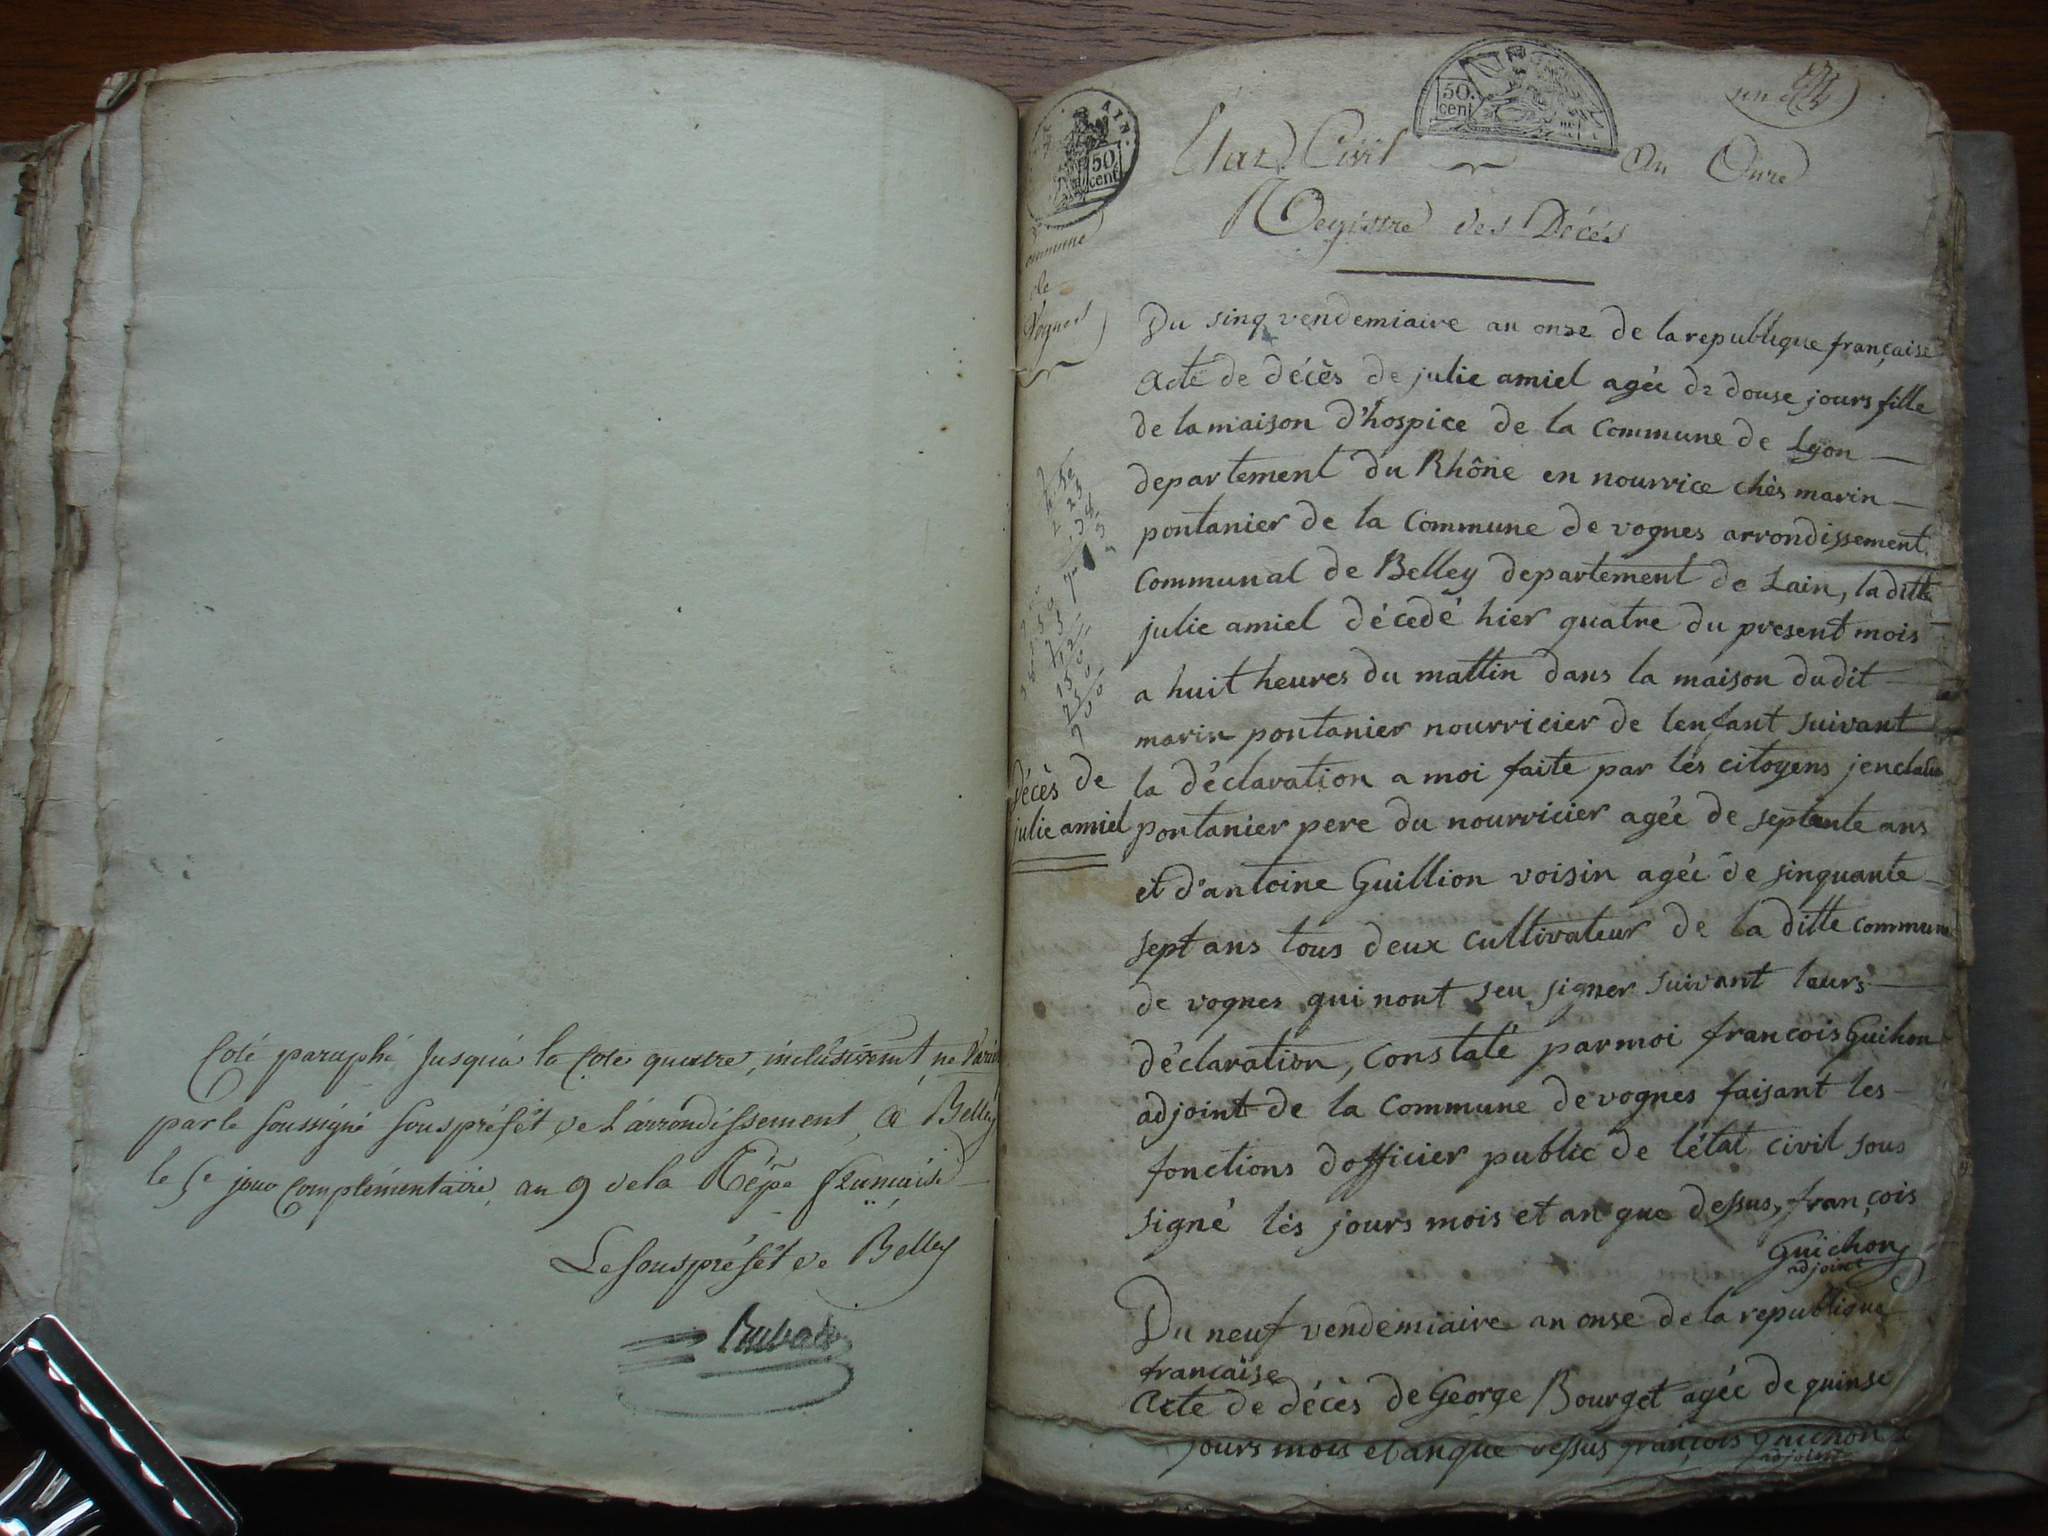 Coté paraphé Jusqua la Cote quatre, inclusivement, ne
par le soussigné sous préfet de L'arrondissement, a Belley
le 5e jour Complémentaire, an 9 de la Répe française
Le sous préfet de Belley
50 cent
AIN
50. cent
un
Etat Civil
An Onze
Registre des Décés
Commune
de
Vognes
Du sinq vendemiaire an onze de la republique française
Acte de décès de julie amiel agée de douse jours fille
de la maison d'hospice de la Commune de Lyon
departement du Rhône en nourrice chès marin
pontanier de la Commune de vognes arrondissement
Communal de Belley departement de Lain, la ditte
julie amiel décedé hier quatre du present mois
a huit heures du mattin dans la maison dudit
marin pontanier nourricier de lenfant suivant
la déclaration a moi faite par les citoyens jenclaude
Décès de
julie amiel
pontanier pere du nourricier agée de septente ans
et d'antoine Guillion voisin agée de sinquante
sept ans tous deux cultivateur de la ditte commune
de vognes qui nont seu signer suivant leurs
déclaration, Constaté par moi francois Guihon
adjoint de la Commune de vognes faisant les
fonctions dofficier public de létat civil sous
signé lès jours mois et an que dessus, françois
Guichon
adjoint
Du neuf vendemiaire an onse de la republique
francaise
Acte de décès de George Bourget agée de quinse
jours mois et an que dessus françois guichon
adjoint